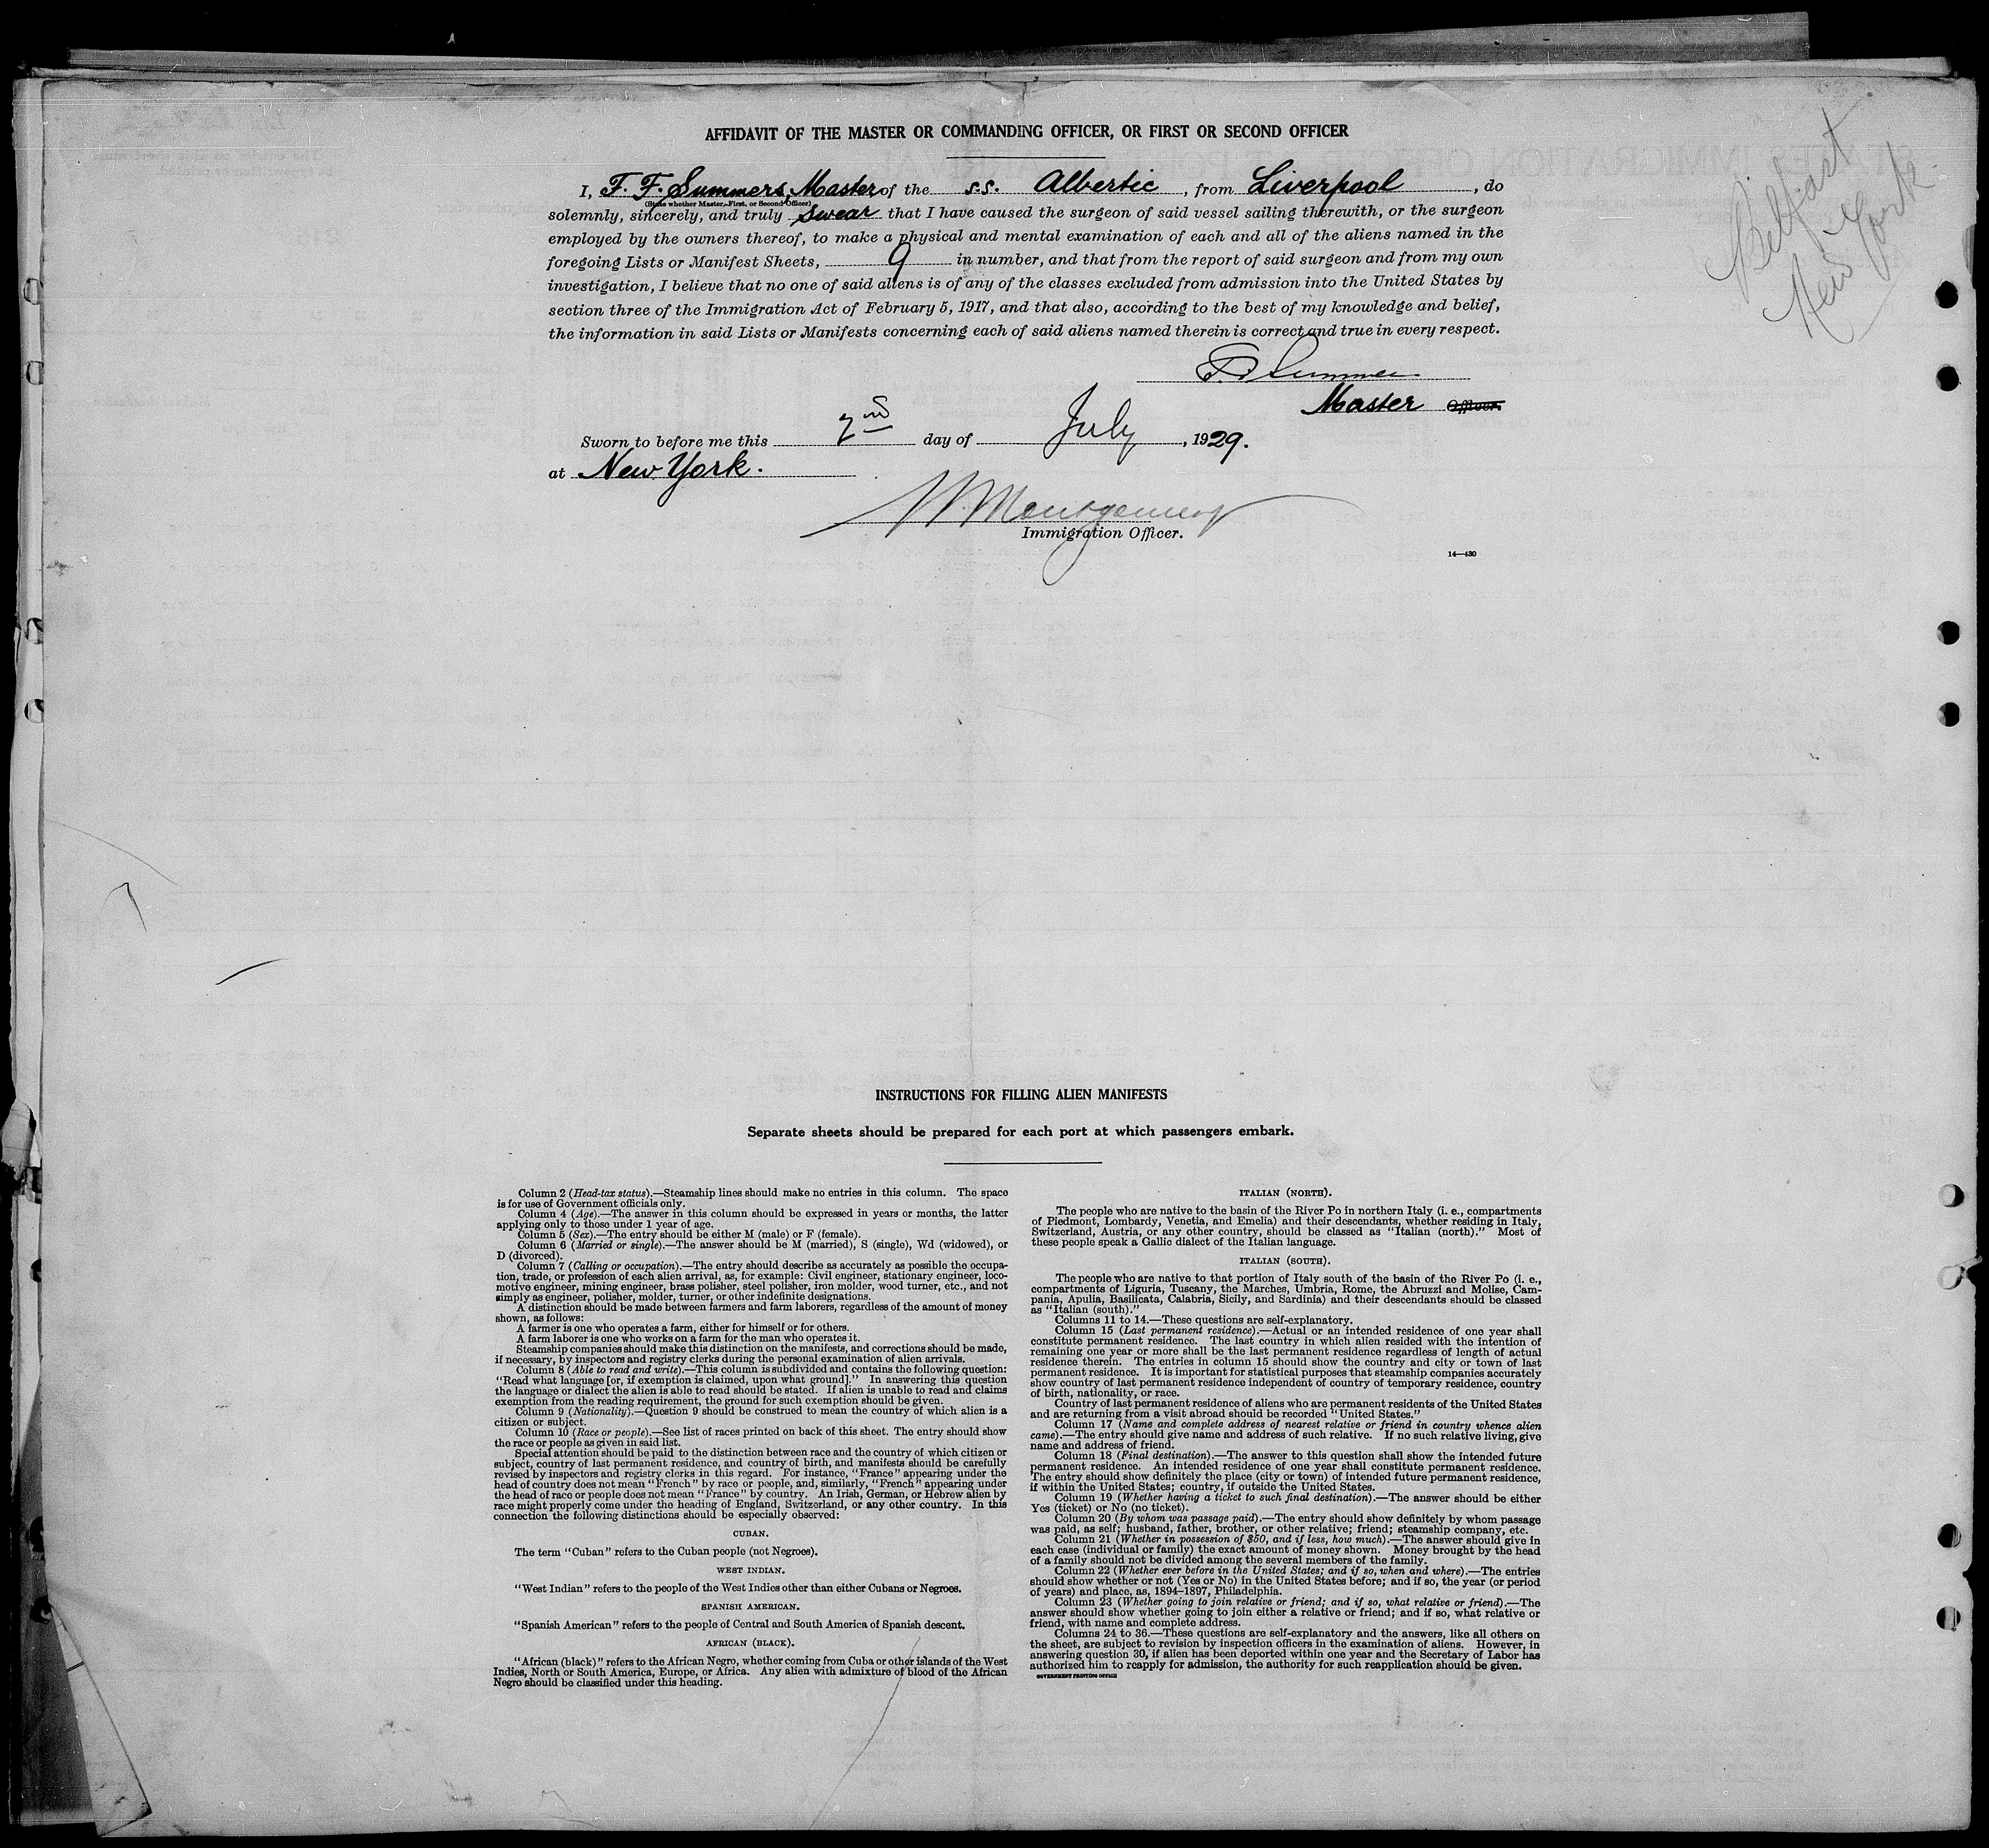 AFFIDAVIT OF THE MASTER OR COMMANDING OFFICER, OR FIRST OR SECOND OFFICER
I, F. F. Summers, Master of the s.s. Albertic, from Liverpool, do
(State whether Master, First, or Second Officer)
solemnly, sincerely, and truly swear that I have caused the surgeon of said vessel sailing therewith, or the surgeon
employed by the owners thereof, to make a physical and mental examination of each and all of the aliens named in the
foregoing Lists or Manifest Sheets, 9 in number, and that from the report of said surgeon and from my own
investigation, I believe that no one of said aliens is of any of the classes excluded from admission into the United States by
section three of the Immigration Act of February 5, 1917, and that also, according to the best of my knowledge and belief,
the information in said Lists or Manifests concerning each of said aliens named therein is correct and true in every respect.
F. F. Summers
Master Officer.
Sworn to before me this 2nd day of July, 1929.
at New York.
Montgomery
Immigration Officer.
14—430
Belfast
New York
INSTRUCTIONS FOR FILLING ALIEN MANIFESTS
Separate sheets should be prepared for each port at which passengers embark.
Column 2 (Head-tax status).—Steamship lines should make no entries in this column. The space
is for use of Government officials only.
Column 4 (Age).—The answer in this column should be expressed in years or months, the latter
applying only to those under 1 year of age.
Column 5 (Sex).—The entry should be either M (male) or F (female).
Column 6 (Married or single).—The answer should be M (married), S (single), Wd (widowed), or
D (divorced).
Column 7 (Calling or occupation).—The entry should describe as accurately as possible the occupa-
tion, trade, or profession of each alien arrival, as, for example: Civil engineer, stationary engineer, loco-
motive engineer, mining engineer, brass polisher, steel polisher, iron molder, wood turner, etc., and not
simply as engineer, polisher, molder, turner, or other indefinite designations.
A distinction should be made between farmers and farm laborers, regardless of the amount of money
shown, as follows:
A farmer is one who operates a farm, either for himself or for others.
A farm laborer is one who works on a farm for the man who operates it.
Steamship companies should make this distinction on the manifests, and corrections should be made,
if necessary, by inspectors and registry clerks during the personal examination of alien arrivals.
Column 8 (Able to read and write).—This column is subdivided and contains the following question:
"Read what language [or, if exemption is claimed, upon what ground]." In answering this question
the language or dialect the alien is able to read should be stated. If alien is unable to read and claims
exemption from the reading requirement, the ground for such exemption should be given.
Column 9 (Nationality).—Question 9 should be construed to mean the country of which alien is a
citizen or subject.
Column 10 (Race or people).—See list of races printed on back of this sheet. The entry should show
the race or people as given in said list.
Special attention should be paid to the distinction between race and the country of which citizen or
subject, country of last permanent residence, and country of birth, and manifests should be carefully
revised by inspectors and registry clerks in this regard. For instance, "France" appearing under the
head of country does not mean "French" by race or people, and, similarly, "French" appearing under
the head of race or people does not mean "France" by country. An Irish, German, or Hebrew alien by
race might properly come under the heading of England, Switzerland, or any other country. In this
connection the following distinctions should be especially observed:
CUBAN.
The term "Cuban" refers to the Cuban people (not Negroes).
WEST INDIAN.
"West Indian" refers to the people of the West Indies other than either Cubans or Negroes.
SPANISH AMERICAN.
"Spanish American" refers to the people of Central and South America of Spanish descent.
AFRICAN (BLACK).
"African (black)" refers to the African Negro, whether coming from Cuba or other islands of the West
Indies, North or South America, Europe, or Africa. Any alien with admixture of blood of the African
Negro should be classified under this heading.
ITALIAN (NORTH).
The people who are native to the basin of the River Po in northern Italy (i. e., compartments
of Piedmont, Lombardy, Venetia, and Emelia) and their descendants, whether residing in Italy,
Switzerland, Austria, or any other country, should be classed as "Italian (north)." Most of
these people speak a Gallic dialect of the Italian language.
ITALIAN (SOUTH).
The people who are native to that portion of Italy south of the basin of the River Po (i. e.,
compartments of Liguria, Tuscany, the Marches, Umbria, Rome, the Abruzzi and Molise, Cam-
pania, Apulia, Basilicata, Calabria, Sicily, and Sardinia) and their descendants should be classed
as "Italian (south)."
Columns 11 to 14.—These questions are self-explanatory.
Column 15 (Last permanent residence).—Actual or an intended residence of one year shall
constitute permanent residence. The last country in which alien resided with the intention of
remaining one year or more shall be the last permanent residence regardless of length of actual
residence therein. The entries in column 15 should show the country and city or town of last
permanent residence. It is important for statistical purposes that steamship companies accurately
show country of last permanent residence independent of country of temporary residence, country
of birth, nationality, or race.
Country of last permanent residence of aliens who are permanent residents of the United States
and are returning from a visit abroad should be recorded "United States."
Column 17 (Name and complete address of nearest relative or friend in country whence alien
came).—The entry should give name and address of such relative. If no such relative living, give
name and address of friend.
Column 18 (Final destination).—The answer to this question shall show the intended future
permanent residence. An intended residence of one year shall constitute permanent residence.
The entry should show definitely the place (city or town) of intended future permanent residence,
if within the United States; country, if outside the United States.
Column 19 (Whether having a ticket to such final destination).—The answer should be either
Yes (ticket) or No (no ticket).
Column 20 (By whom was passage paid).—The entry should show definitely by whom passage
was paid, as self; husband, father, brother, or other relative; friend; steamship company, etc.
Column 21 (Whether in possession of $50, and if less, how much).—The answer should give in
each case (individual or family) the exact amount of money shown. Money brought by the head
of a family should not be divided among the several members of the family.
Column 22 (Whether ever before in the United States; and if so, when and where).—The entries
should show whether or not (Yes or No) in the United States before; and if so, the year (or period
of years) and place, as, 1894-1897, Philadelphia.
Column 23 (Whether going to join relative or friend; and if so, what relative or friend).—The
answer should show whether going to join either a relative or friend; and if so, what relative or
friend, with name and complete address.
Columns 24 to 36.—These questions are self-explanatory and the answers, like all others on
the sheet, are subject to revision by inspection officers in the examination of aliens. However, in
answering question 30, if alien has been deported within one year and the Secretary of Labor has
authorized him to reapply for admission, the authority for such reapplication should be given.
GOVERNMENT PRINTING OFFICE